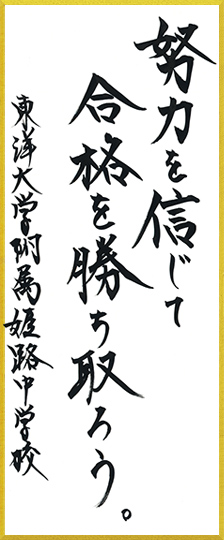 努力を信じて
合格を勝ち取ろう。
東洋大学附属姫路中学校